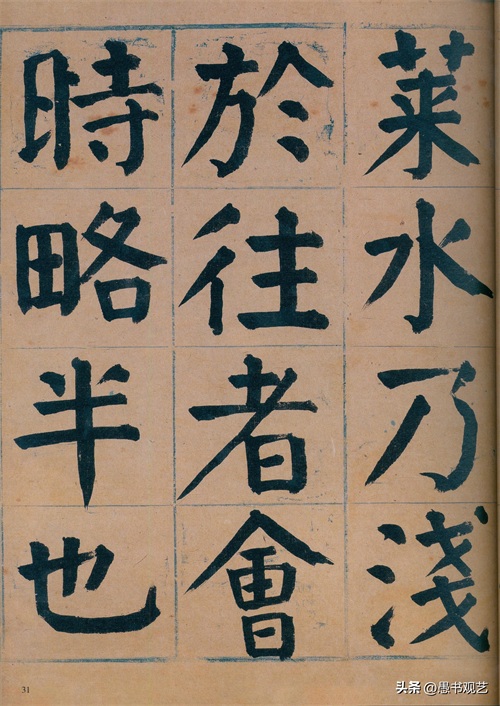 萊水乃淺
於往者會
時略半也
31
头条@愚书观艺